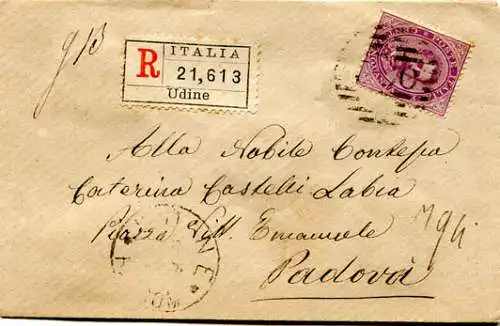 ITALIA
R 21,613
Udine
Alla Nobile Contessa
Caterina Castelli Labia
Piazza Vitt. Emanuele
Padova